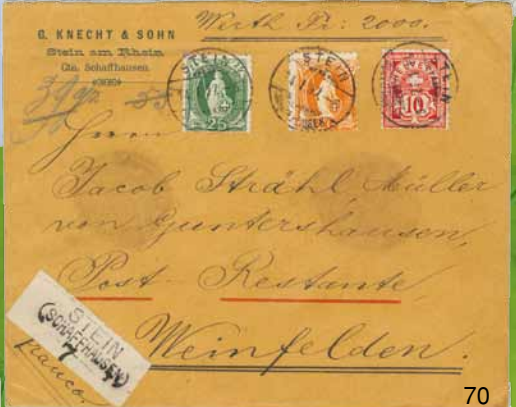 Werth Fr: 2000.
G. KNECHT & SOHN
Stein am Rhein
Ctn. Schaffhausen.
STEIN
STEIN
STEIN
25
10
Herrn
Jacob Strähl, Müller
von Guntershausen,
Post - Restante,
Weinfelden.
STEIN
(SCHAFFHAUSEN)
franco.
70